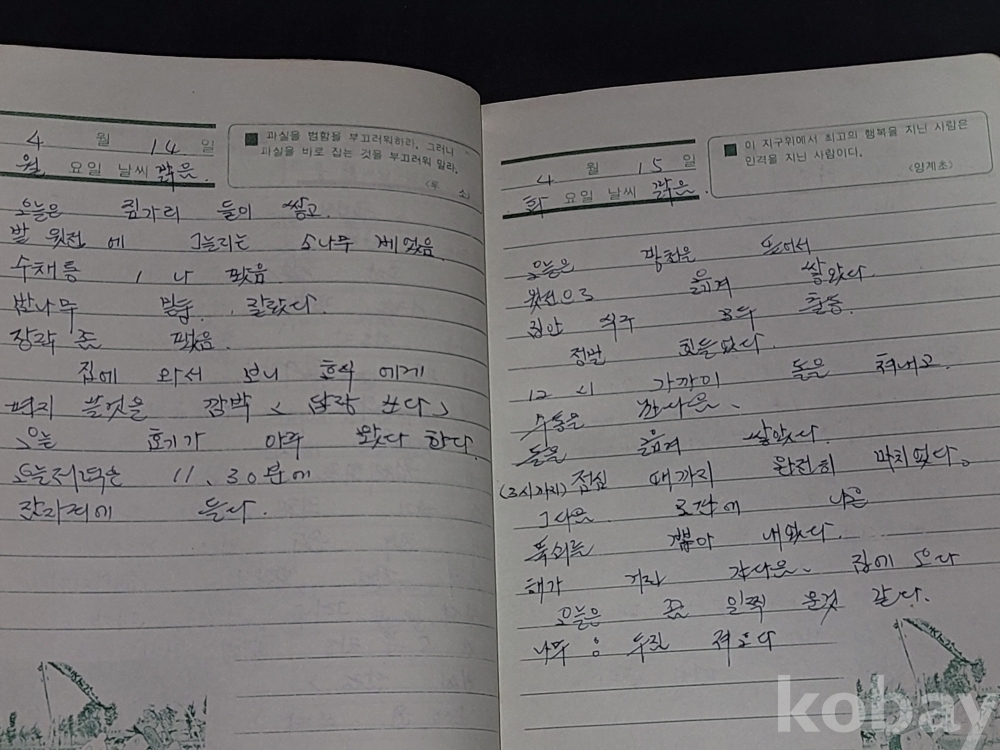 4 월 14 일
월 요일 날씨 맑음.
과실을 범함을 부끄러워하라. 그러나
과실을 바로 잡는 것을 부끄러워 말라.
<루 소>
오늘은 짚가리 들이 쌓고.
밭 윗전 에 그늘지는 소나무 베었음
수채통 1 나 팠음
밤나무 밑둥 . 잘랐다.
장작 좀 팼음.
집에 와서 보니 호식 에게
편지 쓸것을 깜박 < 답장 쓰다 >
오늘 호기가 아주 왔다 한다.
오늘저녁은 11. 30분에
잠자리에 들다.
4 월 15 일
화 요일 날씨 맑음.
이 지구위에서 최고의 행복을 지닌 사람은
인격을 지닌 사람이다.
<임계초>
오늘은 뜯어서
윗선으로 옮겨 쌓았다.
집안 식구 모두 출동.
정말 힘들었다.
12 시 가까이 돌을 쳐내고.
수통을 한다음、
돌을 옮겨 쌓았다.
(3시까지) 점심 때까지 완전히 마치었다。
그다음 조각에 나온
뽑아 내왔다.
해가 거진 갔다음、 집에 오다
오늘은 좀 일찍 온것 같다.
나무 : 두짐 져오다
kobay